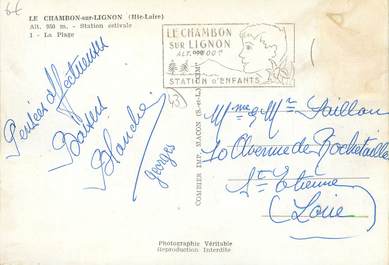 6f
LE CHAMBON-sur-LIGNON (Hte-Loire)
Alt. 950 m. - Station estivale
1 - La Plage
LE CHAMBON
SUR LIGNON
ALT. 1000
STATION D'ENFANTS
43
Pensées affectueuses
Baisers
Blanche
Georges
COMBIER IMP. MACON (S.-et-L.)
Mme & Mr Faillon
10 Avenue de Rochetaillée
St Etienne
(Loire)
Photographie Véritable
Reproduction Interdite